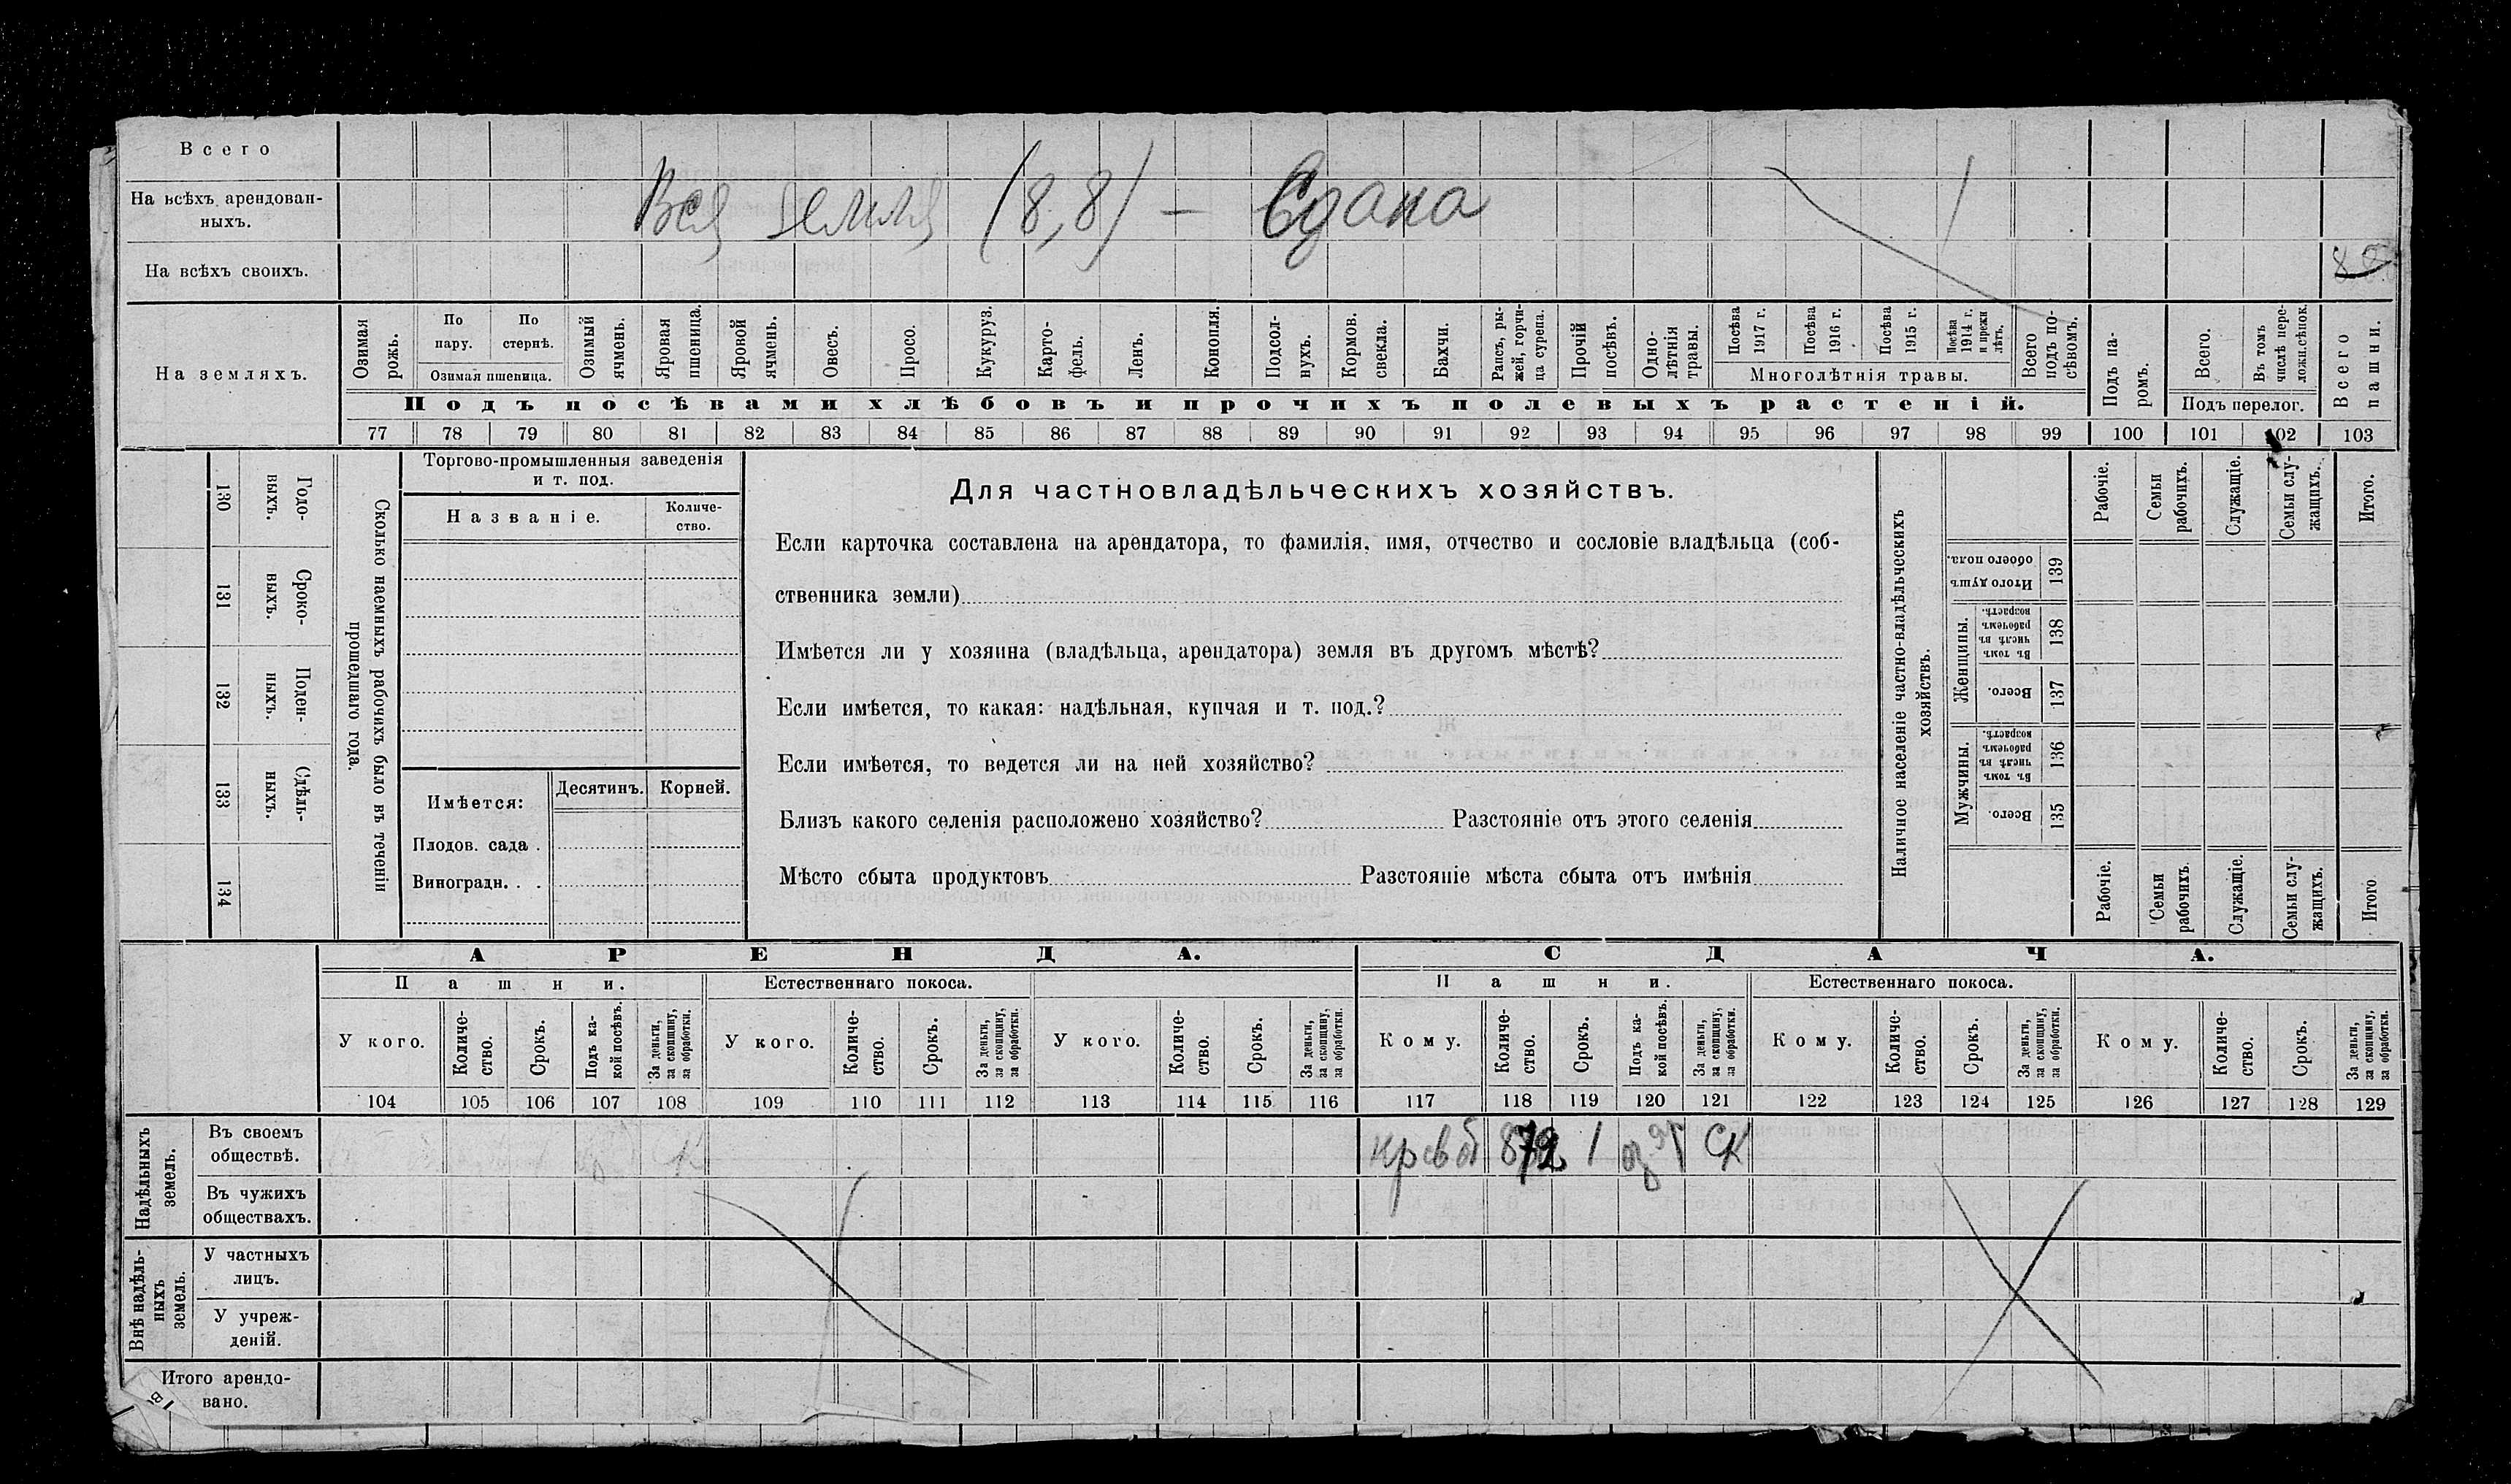 Всего
На всѣхъ арендован-
ныхъ.
Вся земля (8,8) — Сдана
На всѣхъ своихъ.
На земляхъ.
Озимая рожь.
По пару.
По стернѣ.
Озимая пшеница.
Озимый ячмень.
Яровая пшеница.
Яровой ячмень.
Овесъ.
Просо.
Кукуруз.
Карто-
фель.
Ленъ.
Конопля.
Подсол-
нухъ.
Кормов. свекла.
Бахчи.
Рапсъ, ры-
жей, горчи-
ца сурепа.
Прочій посѣвъ.
Одно-
лѣтнія травы.
Посѣва 1917 г.
Посѣва 1916 г.
Посѣва 1915 г.
Посѣва 1914 г. и прежн лѣтъ.
Многолѣтнія травы.
Всего подъ по-
сѣвомъ.
Подъ па-
ромъ.
Всего.
Въ томъ числѣ пере-
ложн.сѣнок.
Подъ перелог.
Всего пашни.
Подъ посѣвами хлѣбовъ и прочихъ полевыхъ растеній.
77 78 79 80 81 82 83 84 85 86 87 88 89 90 91 92 93 94 95 96 97 98 99 100 101 102 103
130 Годо-
выхъ.
131 Сроко-
выхъ.
132 Поден-
ныхъ.
133 Сдѣль-
ныхъ.
134
Сколько наемныхъ рабочихъ было въ теченіи
прошедшаго года.
Торгово-промышленныя заведенія
и т. под.
Названіе.
Количе-
ство.
Имѣется:
Десятинъ.
Корней.
Плодов. сада .
Виноградн. . .
Для частновладѣльческихъ хозяйствъ.
Если карточка составлена на арендатора, то фамилія, имя, отчество и сословіе владѣльца (соб-
ственника земли)
Имѣется ли у хозяина (владѣльца, арендатора) земля въ другомъ мѣстѣ?
Если имѣется, то какая: надѣльная, купчая и т. под.?
Если имѣется, то ведется ли на ней хозяйство?
Близъ какого селенія расположено хозяйство? Разстояніе отъ этого селенія
Мѣсто сбыта продуктовъ Разстояніе мѣста сбыта отъ имѣнія
Наличное населеніе частно-владѣльческихъ
хозяйствъ.
Рабочіе.
Семьи рабочихъ.
Служащіе.
Семьи слу-
жащихъ.
Итого.
Итого душъ обоего пола. 139
Женщины.
Въ томъ числѣ въ рабочемъ возрастѣ. 138
Всего. 137
Мужчины.
Въ томъ числѣ въ рабочемъ возрастѣ. 136
Всего. 135
Рабочіе.
Семьи рабочихъ
Служащіе.
Семьи слу-
жащихъ.
Итого
АРЕНДА.
СДАЧА.
Пашни.
Естественнаго покоса.
Пашни.
Естественнаго покоса.
У кого.
Количе-
ство.
Срокъ.
Подъ ка-
кой посѣвъ.
За деньги, за скопщину, за обработки.
У кого.
Количе-
ство.
Срокъ.
За деньги, за скопщину, за обработки.
У кого.
Количе-
ство.
Срокъ.
За деньги, за скопщину, за обработки.
Кому.
Количе-
ство.
Срокъ.
Подъ ка-
кой посѣвъ.
За деньги, за скопщину, за обработки.
Кому.
Количе-
ство.
Срокъ.
За деньги, за скопщину, за обработки.
Кому.
Количе-
ство.
Срокъ.
За деньги, за скопщину, за обработки.
104 105 106 107 108 109 110 111 112 113 114 115 116 117 118 119 120 121 122 123 124 125 126 127 128 129
Надѣльныхъ
земель.
Въ своемъ
обществѣ.
1 СК
Въ чужихъ
обществахъ.
Внѣ надѣль-
ныхъ
земель.
У частныхъ
лицъ.
У учреж-
деній.
Итого арендо-
вано.